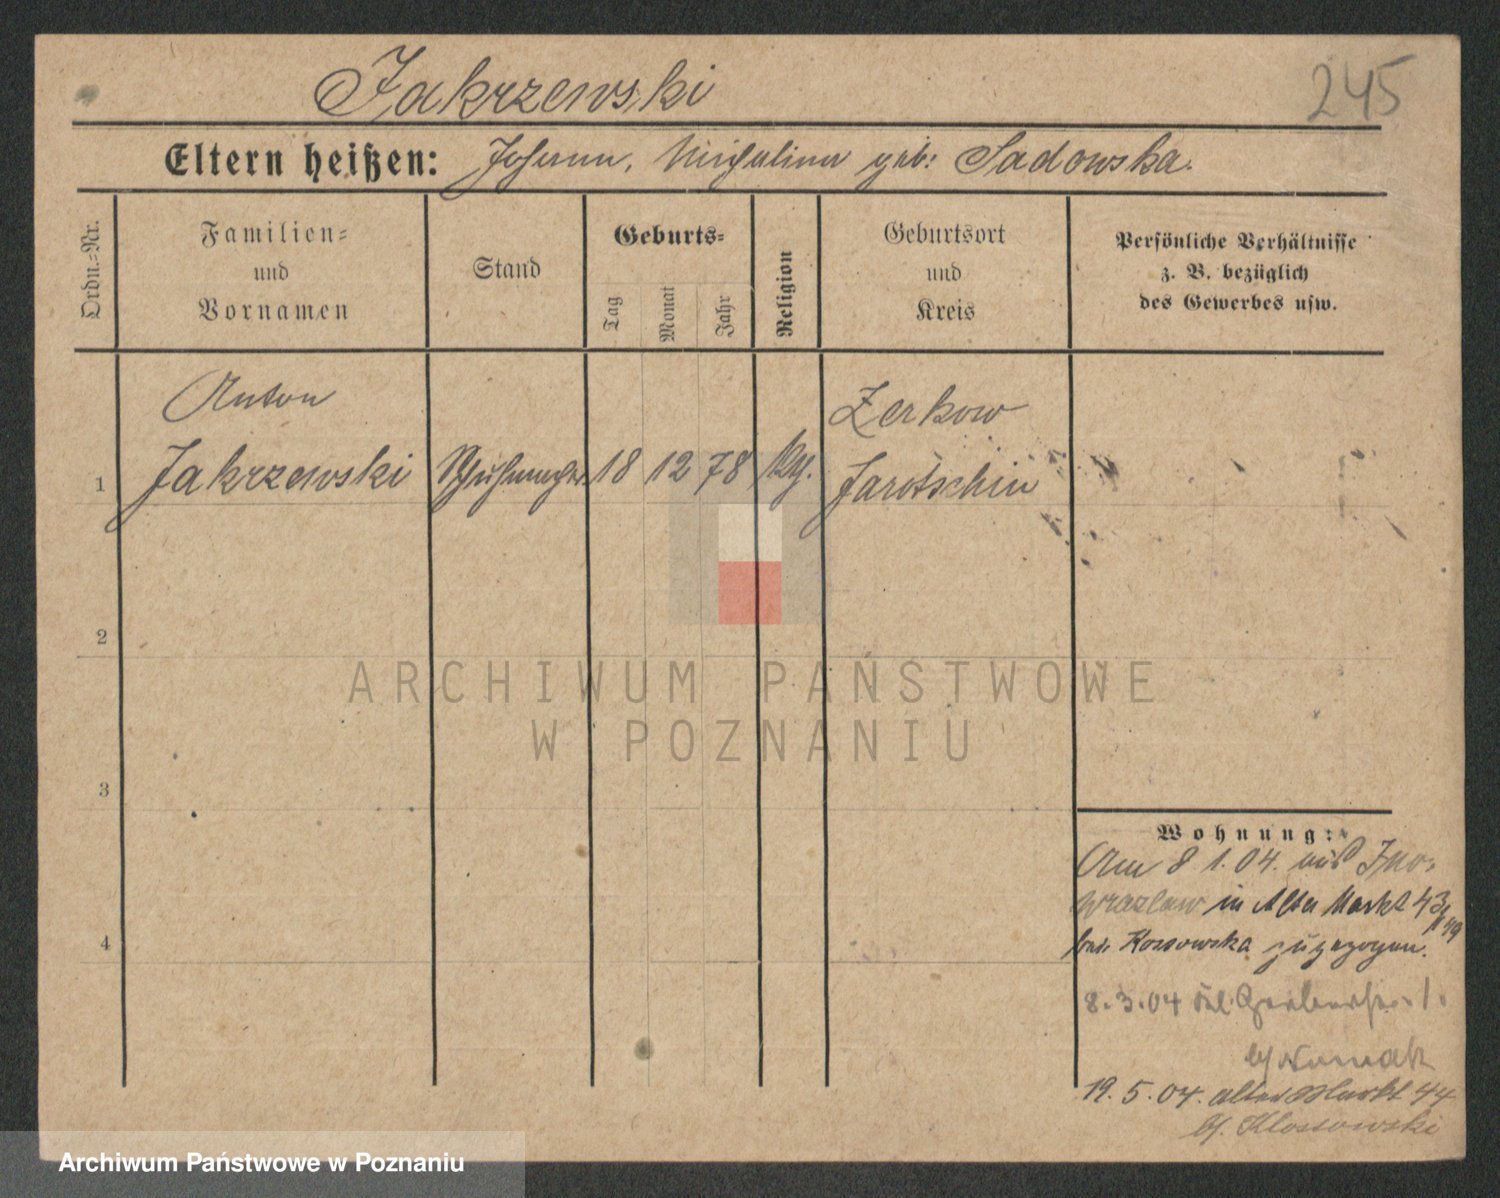 Jakrzewski
245
Eltern heißen: Johann, Michalina geb: Sadowska.
Ordn.=Nr.
Familien=
und
Vornamen
Stand
Geburts=
Tag
Monat
Jahr
Religion
Geburtsort
und
Kreis
Persönliche Verhältnisse
z. B. bezüglich
des Gewerbes usw.
Anton
Zerkow
1 Jakrzewski Schuhmacher 18 12 78 Jarotschin
2
3
4
Wohnung:
Am 8 1.04. aus Ino-
wrazlaw in Alter Markt 43
bei Kossowska zugezogen.
8.3.04
b/ Nowak
19.5.04. alter Markt 44
b/. Klossowski
ARCHIWUM PAŃSTWOWE
W POZNANIU
Archiwum Państwowe w Poznaniu